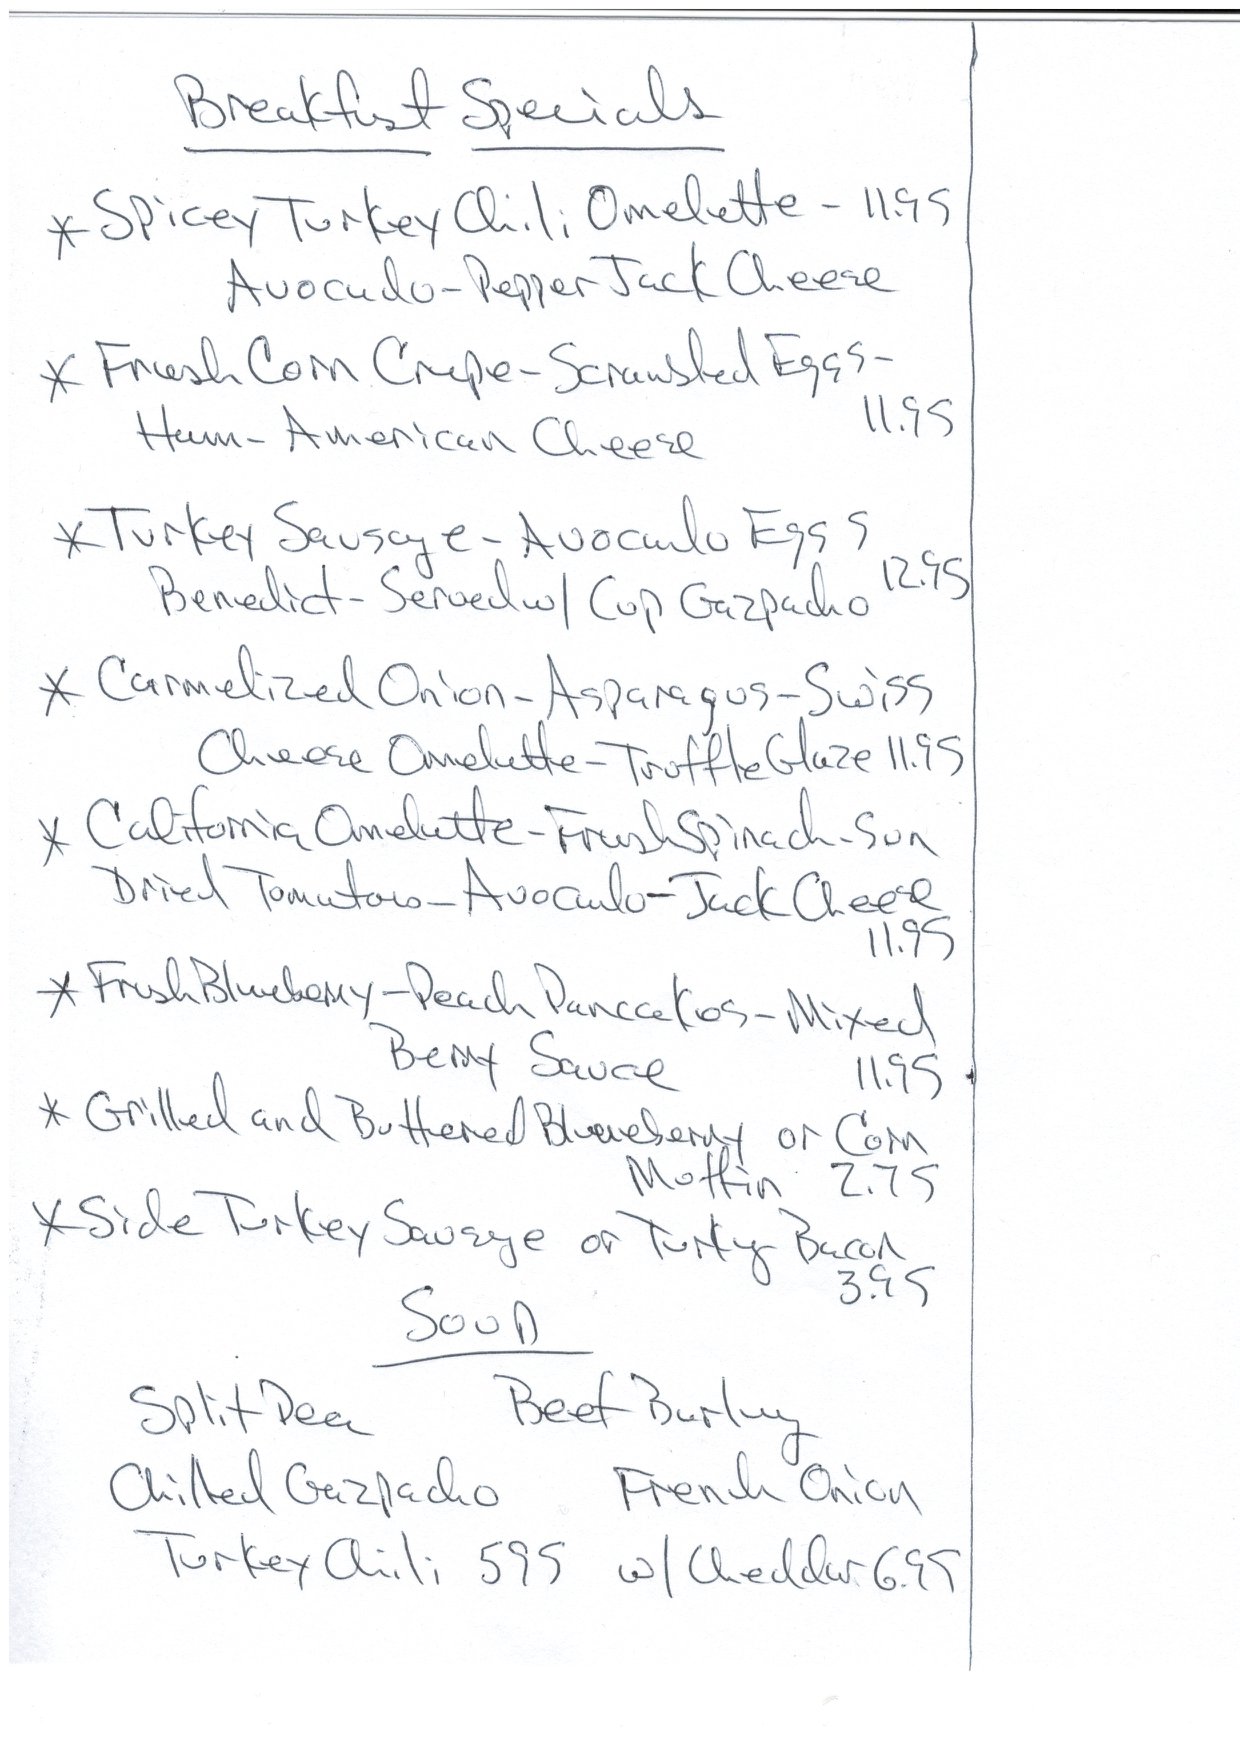 Breakfast Specials
* Spicey Turkey Chili Omelette - 11.95
Avocado - Pepper Jack Cheese
* Fresh Corn Crepe - Scrambled Eggs -
11.95
Ham - American Cheese
* Turkey Sausage - Avocado Eggs
12.95
Benedict - Served w/ Cup Gazpacho
* Carmelized Onion - Asparagus - Swiss
Cheese Omelette - Truffle Glaze 11.95
* California Omelette - Fresh Spinach - Sun
Dried Tomatoes - Avocado - Jack Cheese
11.95
* Fresh Blueberry - Peach Panccakes - Mixed
Berry Sauce 11.95
* Grilled and Buttered Blueberry or Corn
Muffin 2.75
* Side Turkey Sausage or Turky Bacon
3.95
Soup
Split Pea Beef Barley
Chilled Gazpacho French Onion
Turkey Chili 595 w/ Cheddar 6.95